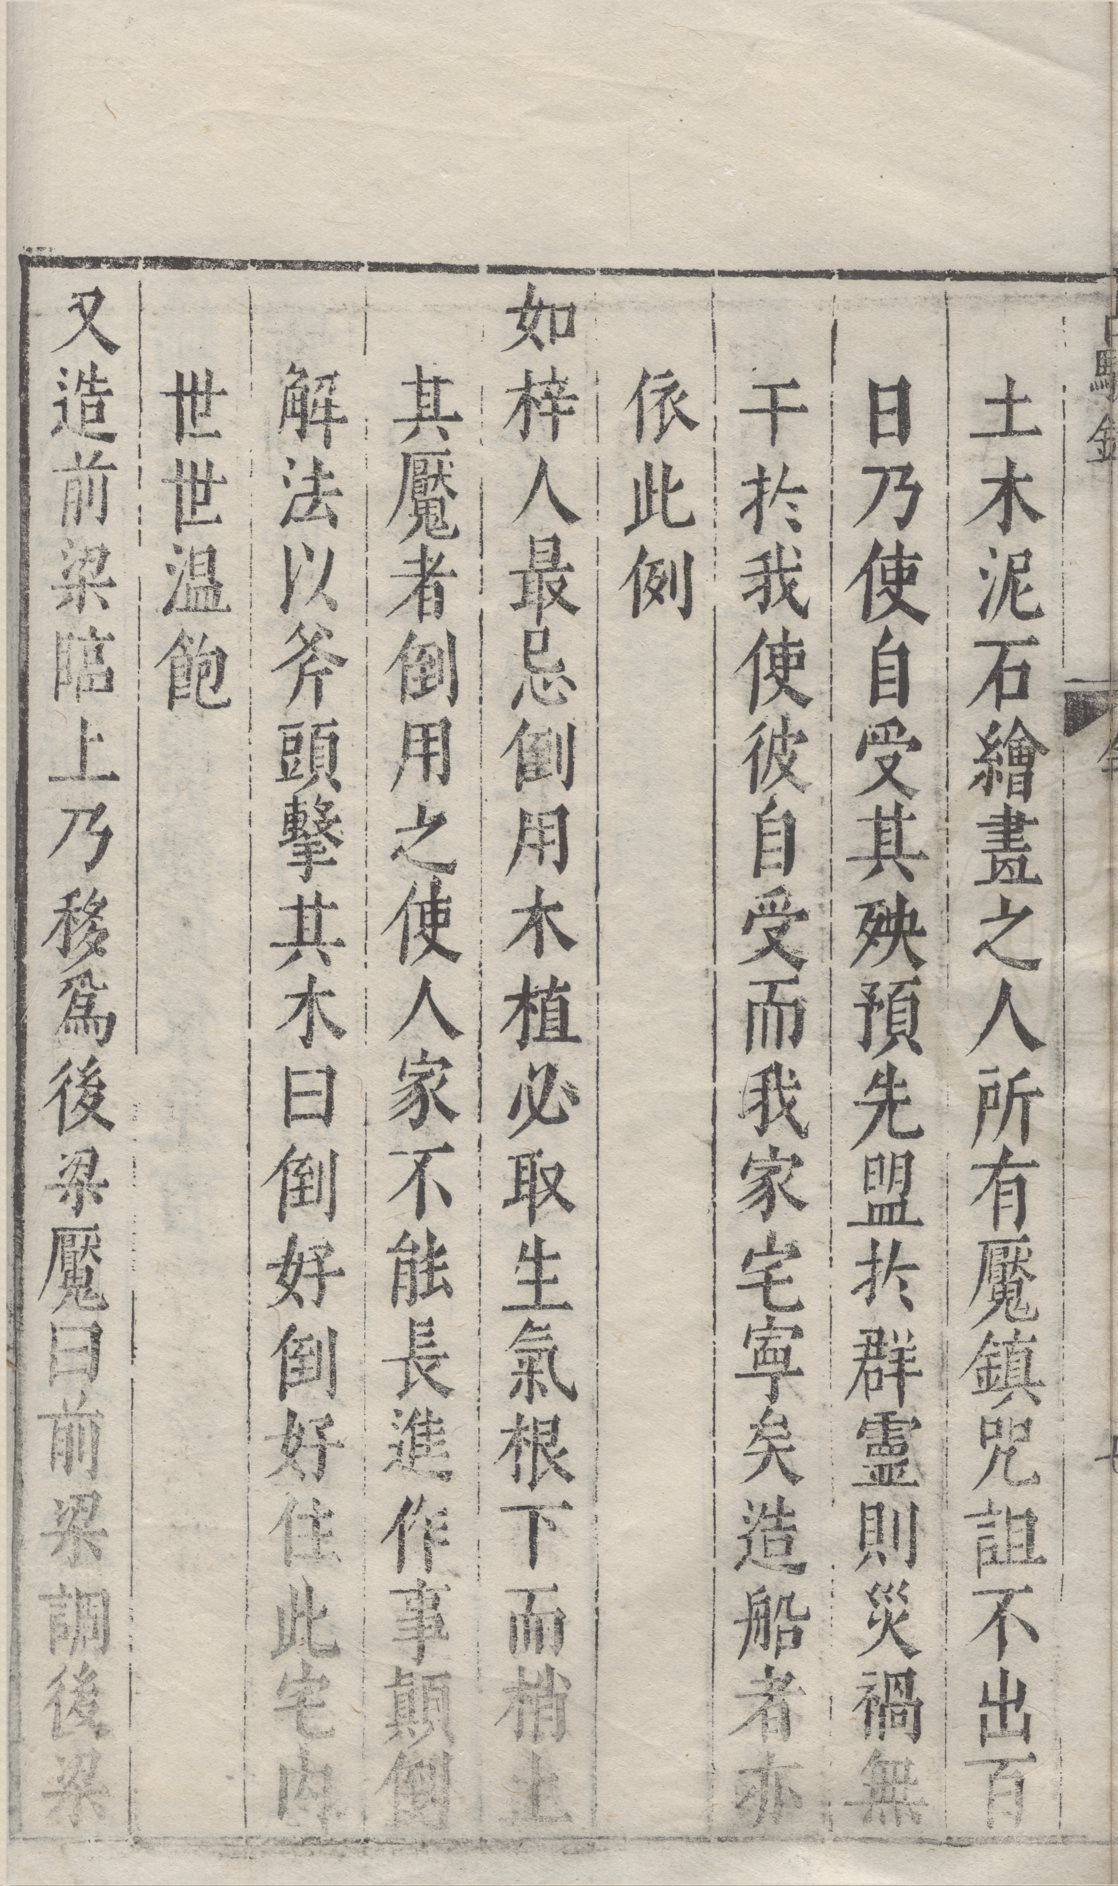 土木泥石繪畫之人所有魘鎮咒詛不出百
日乃使自受其殃預先盟於群靈則災禍無
干於我使彼自受而我家宅寧矣造船者亦
依此例
如梓人最忌倒用木植必取生氣根下而梢上
其魘者倒用之使人家不能長進作事顛倒
解法以斧頭擊其木曰倒好倒好住此宅内
世世温飽
又造前梁臨上乃移爲後梁魘曰前梁調後梁